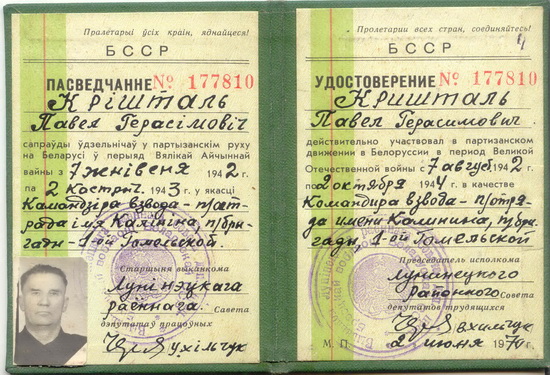 Пралетарыі ўсіх краін, яднайцеся!
БССР
ПАСВЕДЧАННЕ № 177810
Крішталь
Павел Герасімовіч
сапраўды ўдзельнічаў у партызанскім руху
на Беларусі ў перыяд Вялікай Айчыннай
вайны з 7 жнівеня 1942 г.
па 2 кострич. 1943 г. у якасці
Камандзіра взвода - п/ат-
рада імя Калініна, п/бри-
гады - 1-ой Гомельской
Старшыня выканкома
Лунінэцкага
раённага Савета
дэпутатаў працоўных
Пролетарии всех стран, соединяйтесь!
БССР
УДОСТОВЕРЕНИЕ № 177810
Кришталь
Павел Герасимович
действительно участвовал в партизанском
движении в Белоруссии в период Великой
Отечественной войны с 7 август 1942 г.
по 2 октября 1944 г. в качестве
Командира взвода - п/отря-
да имени Калинина, п/бри-
гады, 1-ой Гомельской
Председатель исполкома
Лунинецкого
районного Совета
депутатов трудящихся
М. П. 2 июня 1970 г.